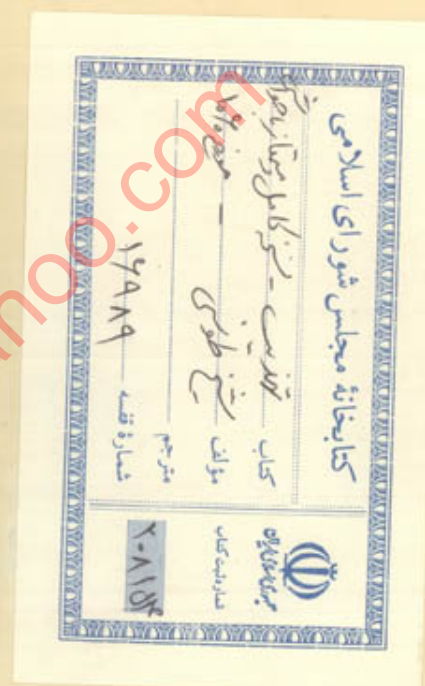 کتابخانهٔ مجلس شورای اسلامی
کتاب تهذیب - نسخه کامل ممتاز
مؤلف شیخ طوسی -
مترجم
شمارهٔ قفسه ۱۶۹۸۹
جمهوری اسلامی ایران
شماره ثبت کتاب
۲۰۸۱۵۴
ahoo.com